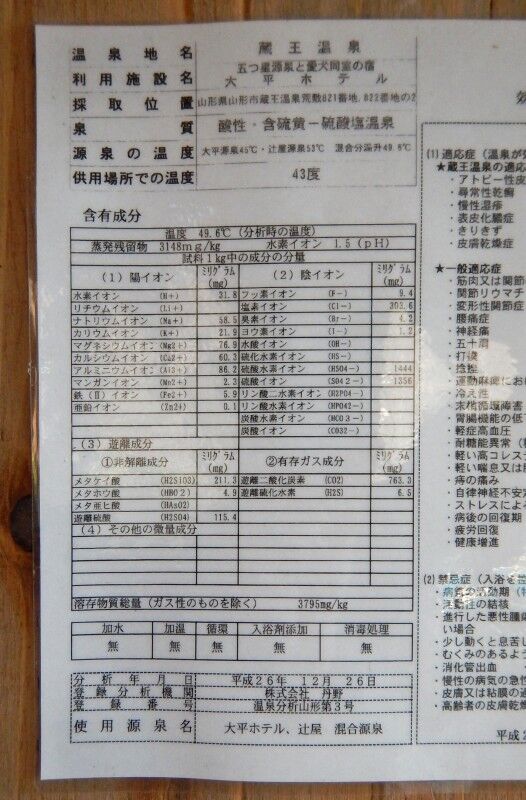 温泉地名 蔵王温泉
利用施設名 五つ星源泉と愛犬同室の宿
大平ホテル
採取位置 山形県山形市蔵王温泉荒敷821番地、822番地の2
泉質 酸性・含硫黄－硫酸塩温泉
源泉の温度 大平源泉45℃・辻屋源泉53℃ 混合分湯升49.6℃
供用場所での温度 43度
含有成分
温度 49.6℃ (分析時の温度)
蒸発残留物 3148mg/kg 水素イオン 1.5 (pH)
試料1kg中の成分の分量
(1) 陽イオン ミリグラム(mg) (2) 陰イオン ミリグラム(mg)
水素イオン (H+) 31.8 フッ素イオン (F-) 9.4
リチウムイオン (Li+) 塩素イオン (Cl-) 303.6
ナトリウムイオン (Na+) 58.5 臭素イオン (Br-) 4.2
カリウムイオン (K+) 21.9 ヨウ素イオン (I-) 1.2
マグネシウムイオン (Mg2+) 76.9 水酸イオン (OH-)
カルシウムイオン (Ca2+) 60.3 硫化水素イオン (HS-)
アルミニウムイオン (Al3+) 86.2 硫酸水素イオン (HSO4-) 1444
マンガンイオン (Mn2+) 2.3 硫酸イオン (SO42-) 1356
鉄(Ⅱ)イオン (Fe2+) 5.9 リン酸二水素イオン (H2PO4-)
亜鉛イオン (Zn2+) 0.1 リン酸水素イオン (HPO42-)
炭酸水素イオン (HCO3-)
炭酸イオン (CO32-)
(3) 遊離成分
①非解離成分 ミリグラム(mg) ②有存ガス成分 ミリグラム(mg)
メタケイ酸 (H2SiO3) 211.3 遊離二酸化炭素 (CO2) 763.3
メタホウ酸 (HBO2) 4.9 遊離硫化水素 (H2S) 6.5
メタ亜ヒ酸 (HAsO2)
遊離硫酸 (H2SO4) 115.4
(4) その他の微量成分
溶存物質総量 (ガス性のものを除く) 3795mg/kg
加水 加温 循環 入浴剤添加 消毒処理
無 無 無 無 無
分析年月日 平成26年 12月 26日
登録分析機関 株式会社 丹野
登録番号 温泉分析山形第3号
使用源泉名 大平ホテル、辻屋 混合源泉
(1) 適応症 (温泉が
★蔵王温泉の適応
・アトピー性皮
・尋常性乾癬
・慢性湿疹
・表皮化膿症
・きりきず
・皮膚乾燥症
★一般適応症
・筋肉又は関節
・関節リウマチ
・変形性関節症
・腰痛症
・神経痛
・五十肩
・打撲
・捻挫
・運動麻痺にお
・冷え性
・末梢循環障害
・胃腸機能の低
・軽症高血圧
・耐糖能異常 (
・軽い高コレス
・軽い喘息又は
・痔の痛み
・自律神経不安
・ストレスによ
・病後の回復期
・疲労回復
・健康増進
(2) 禁忌症 (入浴を
・病気の活動期 (
・活動性の結核
・進行した悪性腫
い場合
・少し動くと息苦し
・むくみのあるよう
・消化管出血
・慢性の病気の急
・皮膚又は粘膜の過
・高齢者の皮膚乾燥
平成2